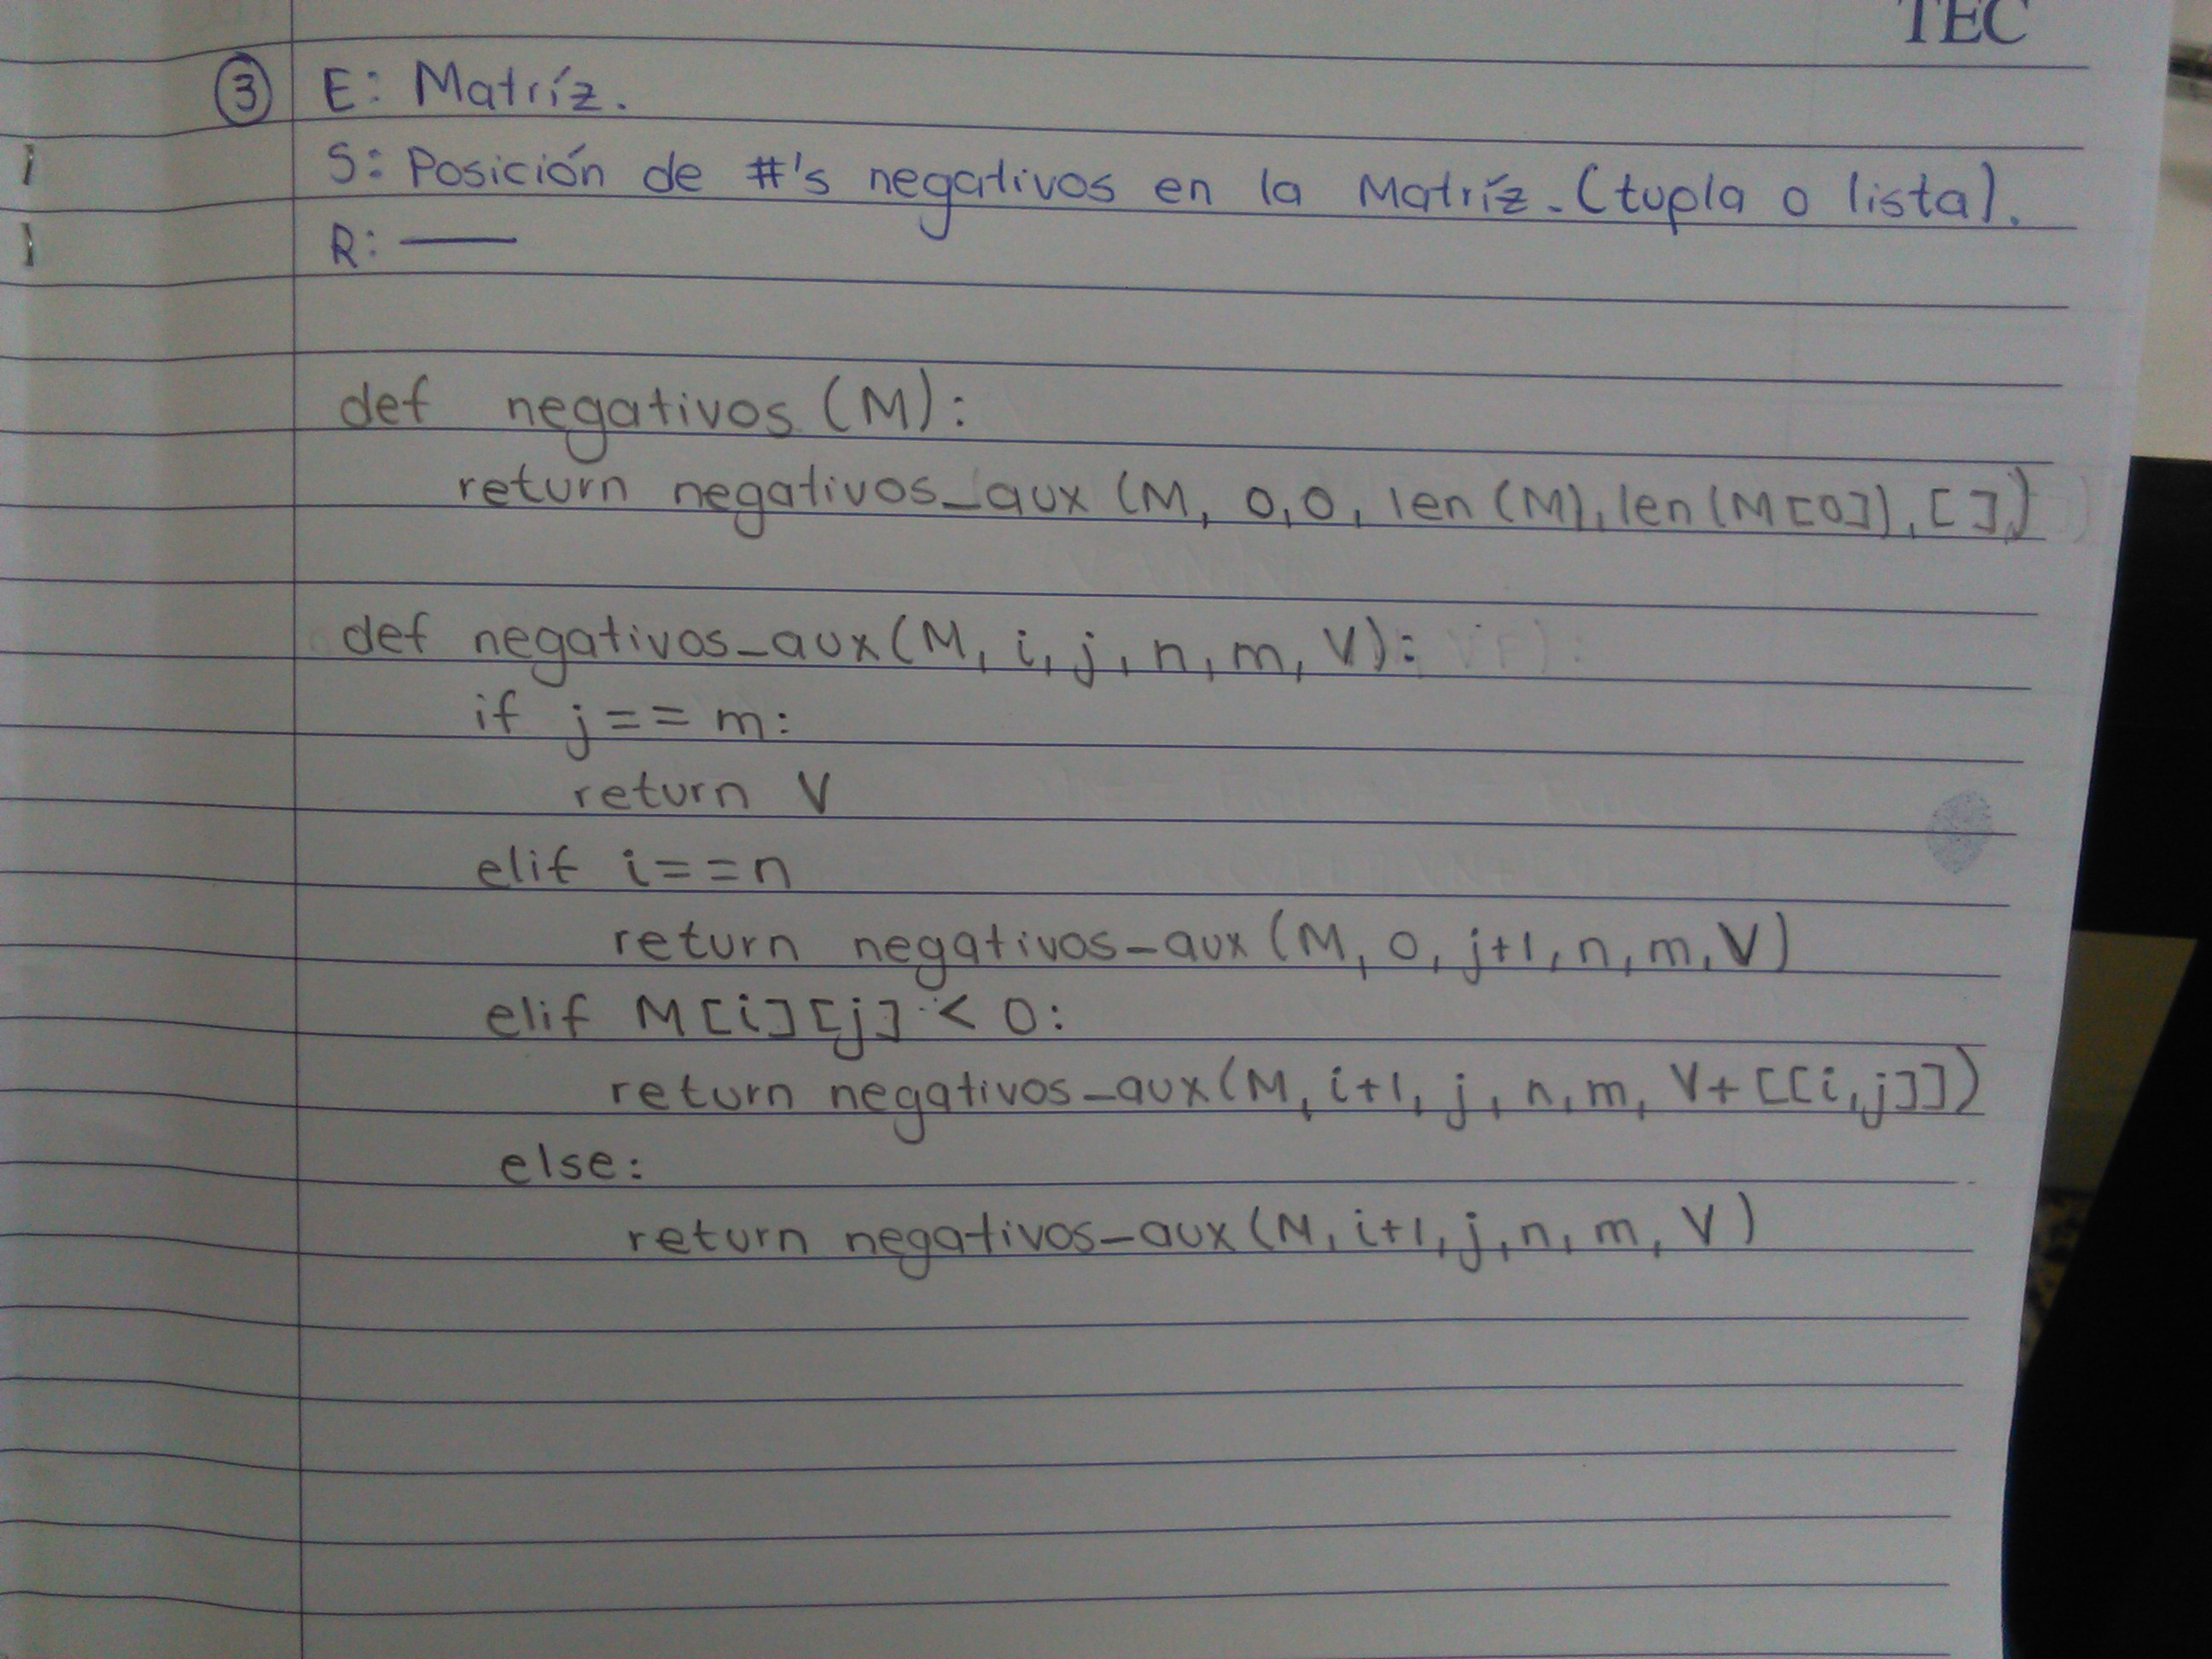 TEC
③ E: Matríz.
S: Posición de #'s negativos en la Matríz. (tupla o lista).
R: —
def negativos (M):
return negativos_aux (M, 0,0, len (M), len (M[0]), [ ])
def negativos_aux(M, i, j, n, m, V):
if j == m:
return V
elif i == n
return negativos_aux (M, 0, j+1, n, m, V)
elif M[i][j] < 0:
return negativos_aux(M, i+1, j, n, m, V+[[i,j]])
else:
return negativos_aux (M, i+1, j, n, m, V)